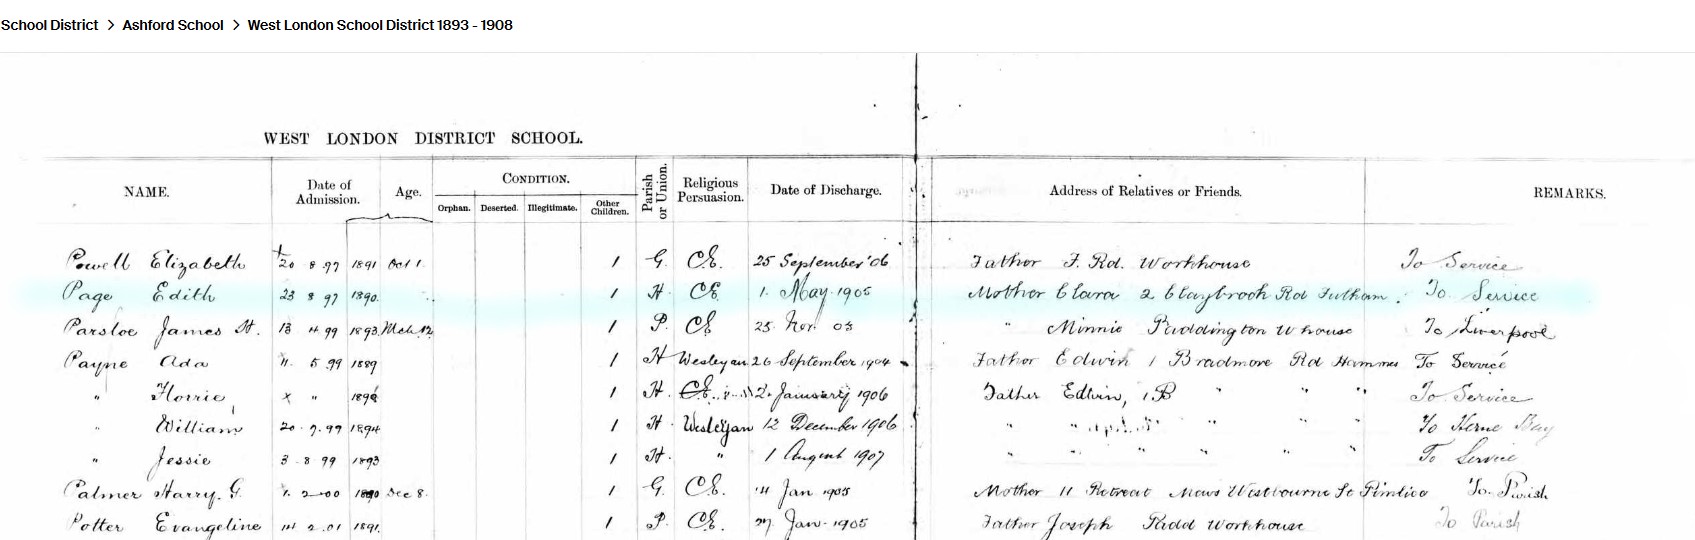 School District > Ashford School > West London School District 1893 - 1908
WEST LONDON DISTRICT SCHOOL.
NAME. Date of Admission. Age. CONDITION. Orphan. Deserted. Illegitimate. Other Children. Parish or Union. Religious Persuasion. Date of Discharge. Address of Relatives or Friends. REMARKS.
Powell Elizabeth 20 8 97 1891 Oct 1 1 G. C.E. 25 September '06 Father F. Rd. Workhouse To Service
Page Edith 23 8 97 1890 1 H. CE 1. May 1905 Mother Clara 2 Claybrook Rd Fulham. To Service
Parsloe James H. 13 4 99 1893 Mch 12 1 P. CE 25 Nov 05 " Minnie Paddington W house To Liverpool
Payne Ada 11. 5 99 1889 1 H Wesleyan 26 September 1904 Father Edwin 1 Bradmore Rd Hammes To Service
" Florrie " 1 H. January 1906 Father Edwin, 1 B " " " To Service
" William 20 . 7 . 99 1894 1 H Wesleyan 12 December 1906 " " " " " To Herne Bay
" Jessie 3 . 8 99 1893 1 H. " 1 August 1907 " " " " " To Service
Palmer Harry. G. 1. 2 00 1890 Dec 8. 1 G. C.E. Jan 1905 Mother 11 Retreat Mews Westbourne St Pimlico To Parish
Potter Evangeline 14 2.01 1891. 1 P. C.E. 27 Jan. 1905 Father Joseph Padd Workhouse To Parish